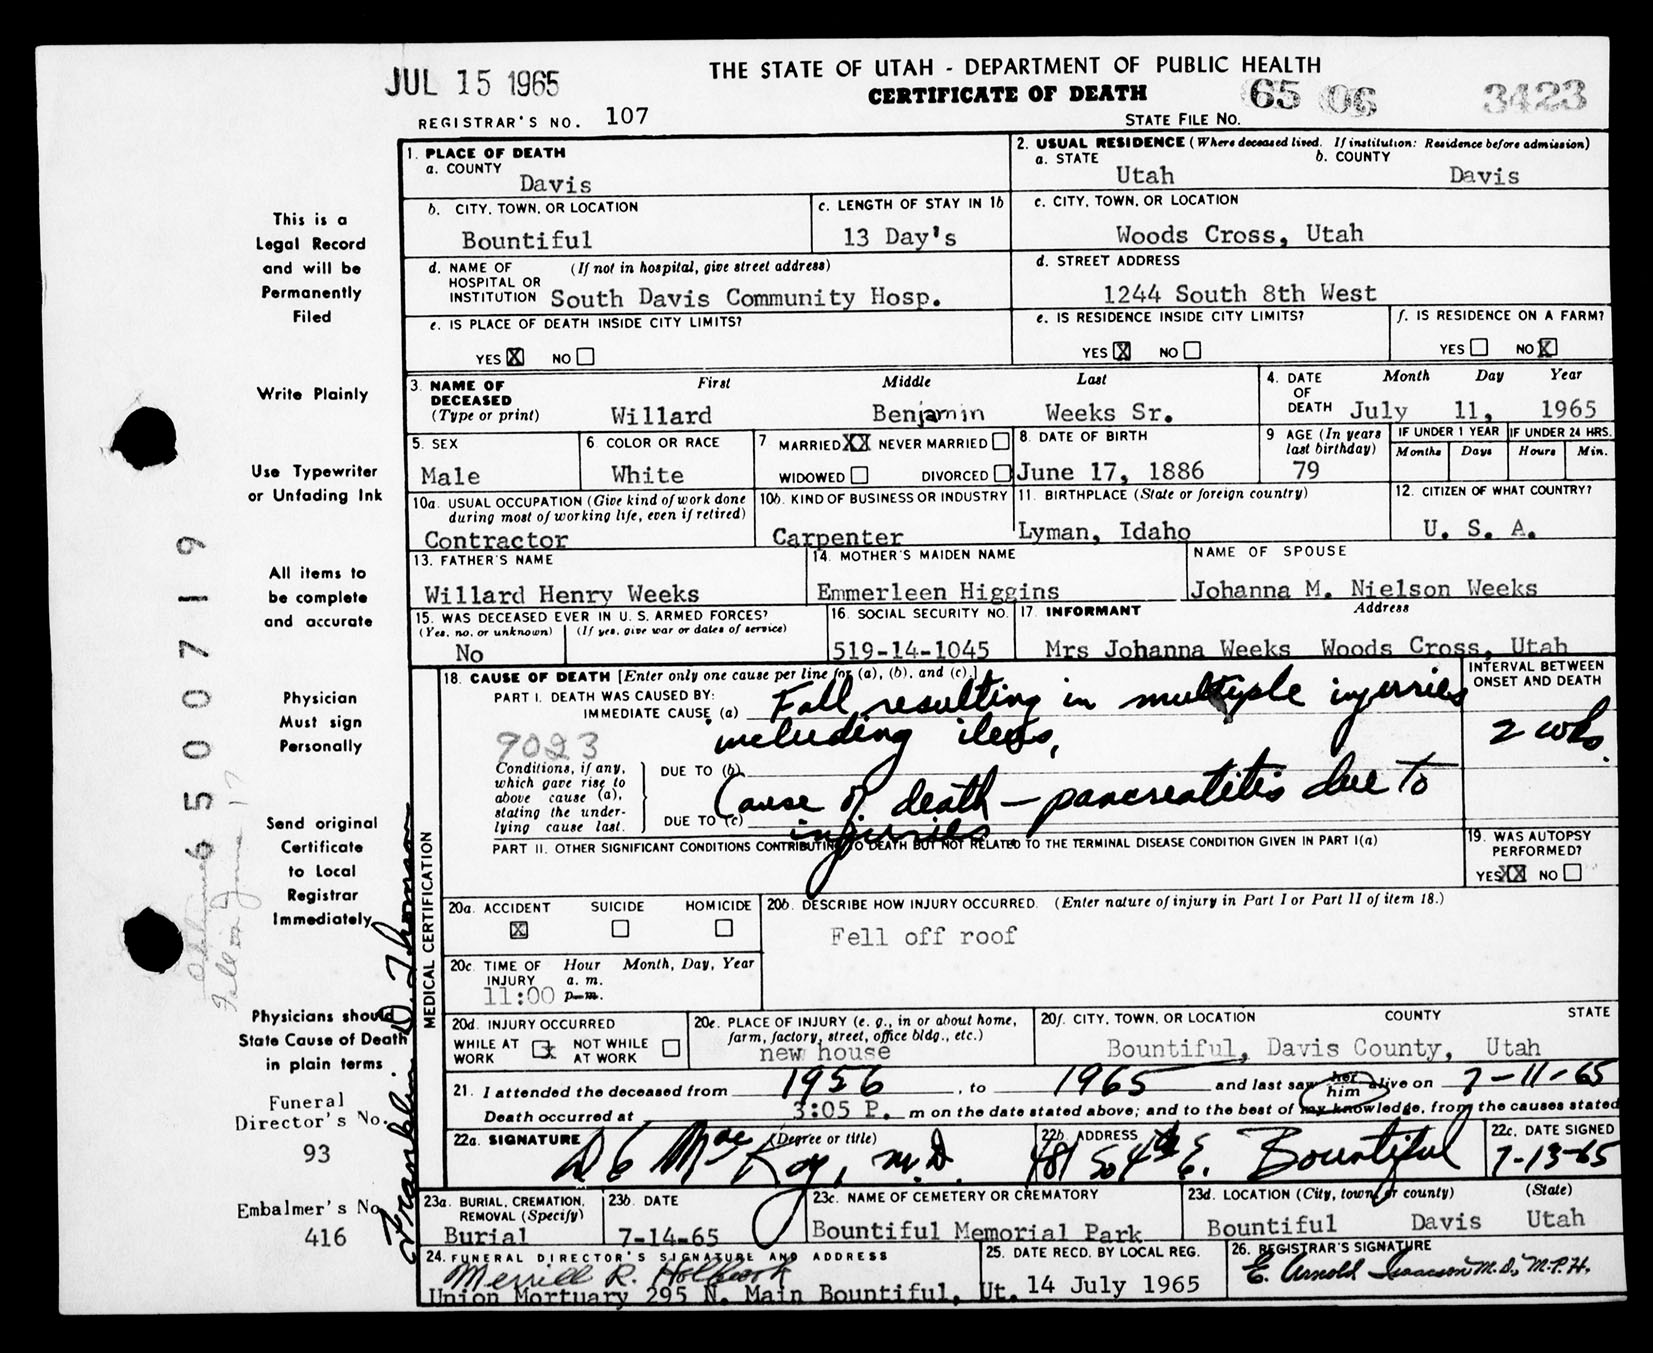 JUL 15 1965
THE STATE OF UTAH - DEPARTMENT OF PUBLIC HEALTH
CERTIFICATE OF DEATH
65 06 3423
REGISTRAR'S NO. 107
STATE FILE NO.
This is a
Legal Record
and will be
Permanently
Filed
Write Plainly
Use Typewriter
or Unfading Ink
All items to
be complete
and accurate
Physician
Must sign
Personally
Send original
Certificate
to Local
Registrar
Immediately
Physicians should
State Cause of Death
in plain terms
Funeral
Director's No.
93
Embalmer's No.
416
6500719
Franklin D. Thomson
1. PLACE OF DEATH
a. COUNTY
Davis
2. USUAL RESIDENCE (Where deceased lived. If institution: Residence before admission)
a. STATE b. COUNTY
Utah Davis
b. CITY, TOWN, OR LOCATION
Bountiful
c. LENGTH OF STAY IN 1b
13 Day's
c. CITY, TOWN, OR LOCATION
Woods Cross, Utah
d. NAME OF (If not in hospital, give street address)
HOSPITAL OR
INSTITUTION South Davis Community Hosp.
d. STREET ADDRESS
1244 South 8th West
e. IS PLACE OF DEATH INSIDE CITY LIMITS?
YES X NO
e. IS RESIDENCE INSIDE CITY LIMITS?
YES X NO
f. IS RESIDENCE ON A FARM?
YES NO X
3. NAME OF First Middle Last
DECEASED
(Type or print) Willard Benjamin Weeks Sr.
4. DATE Month Day Year
OF
DEATH July 11, 1965
5. SEX
Male
6. COLOR OR RACE
White
7 MARRIED XX NEVER MARRIED
WIDOWED DIVORCED
8. DATE OF BIRTH
June 17, 1886
9 AGE (In years
last birthday)
79
IF UNDER 1 YEAR
Months Days
IF UNDER 24 HRS.
Hours Min.
10a. USUAL OCCUPATION (Give kind of work done
during most of working life, even if retired)
Contractor
10b. KIND OF BUSINESS OR INDUSTRY
Carpenter
11. BIRTHPLACE (State or foreign country)
Lyman, Idaho
12. CITIZEN OF WHAT COUNTRY?
U. S. A.
13. FATHER'S NAME
Willard Henry Weeks
14. MOTHER'S MAIDEN NAME
Emmerleen Higgins
NAME OF SPOUSE
Johanna M. Nielson Weeks
15. WAS DECEASED EVER IN U. S. ARMED FORCES?
(Yes, no, or unknown) (If yes, give war or dates of service)
No
16. SOCIAL SECURITY NO.
519-14-1045
17. INFORMANT Address
Mrs Johanna Weeks Woods Cross, Utah
MEDICAL CERTIFICATION
18. CAUSE OF DEATH [Enter only one cause per line for (a), (b), and (c).]
INTERVAL BETWEEN
ONSET AND DEATH
PART I. DEATH WAS CAUSED BY:
IMMEDIATE CAUSE (a) Fall resulting in multiple injurries
including ileus,
2 wks.
9023
Conditions, if any,
which gave rise to
above cause (a),
stating the under-
lying cause last.
DUE TO (b)
Cause of death - pancreatitis due to
DUE TO (c)
injurries
PART II. OTHER SIGNIFICANT CONDITIONS CONTRIBUTING TO DEATH BUT NOT RELATED TO THE TERMINAL DISEASE CONDITION GIVEN IN PART I(a)
19. WAS AUTOPSY
PERFORMED?
YES XX NO
20a. ACCIDENT SUICIDE HOMICIDE
X
20b. DESCRIBE HOW INJURY OCCURRED. (Enter nature of injury in Part I or Part II of item 18.)
Fell off roof
20c. TIME OF Hour Month, Day, Year
INJURY a. m.
11:00 p. m.
20d. INJURY OCCURRED
WHILE AT X NOT WHILE
WORK AT WORK
20e. PLACE OF INJURY (e. g., in or about home,
farm, factory, street, office bldg., etc.)
new house
20f. CITY, TOWN, OR LOCATION COUNTY STATE
Bountiful, Davis County, Utah
21. I attended the deceased from 1956, to 1965 and last saw her him alive on 7-11-65
Death occurred at 3:05 P. m on the date stated above; and to the best of my knowledge, from the causes stated
22a. SIGNATURE (Degree or title)
D C MacKay, M.D.
22b. ADDRESS
481 So 4th E. Bountiful
22c. DATE SIGNED
7-13-65
23a. BURIAL, CREMATION,
REMOVAL (Specify)
Burial
23b. DATE
7-14-65
23c. NAME OF CEMETERY OR CREMATORY
Bountiful Memorial Park
23d. LOCATION (City, town, or county) (State)
Bountiful Davis Utah
24. FUNERAL DIRECTOR'S SIGNATURE AND ADDRESS
Merrill R. Holbrook
Union Mortuary 295 N. Main Bountiful, Ut.
25. DATE RECD. BY LOCAL REG.
14 July 1965
26. REGISTRAR'S SIGNATURE
E. Arnold Isaacson M.D., M.P.H.